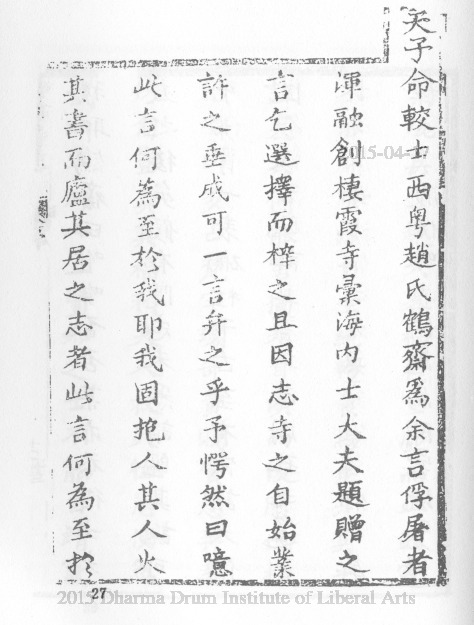 天子命較士西粤趙氏鶴齋爲余言俘屠者
渾融創棲霞寺彙海內士大夫題贈之
言乞選擇而梓之且因志寺之自始業
許之垂成可一言弁之乎予愕然曰噫
此言何為至於我耶我固抱人其人火
其書而廬其居之志者此言何為至於
27
2015 Dharma Drum Institute of Liberal Arts